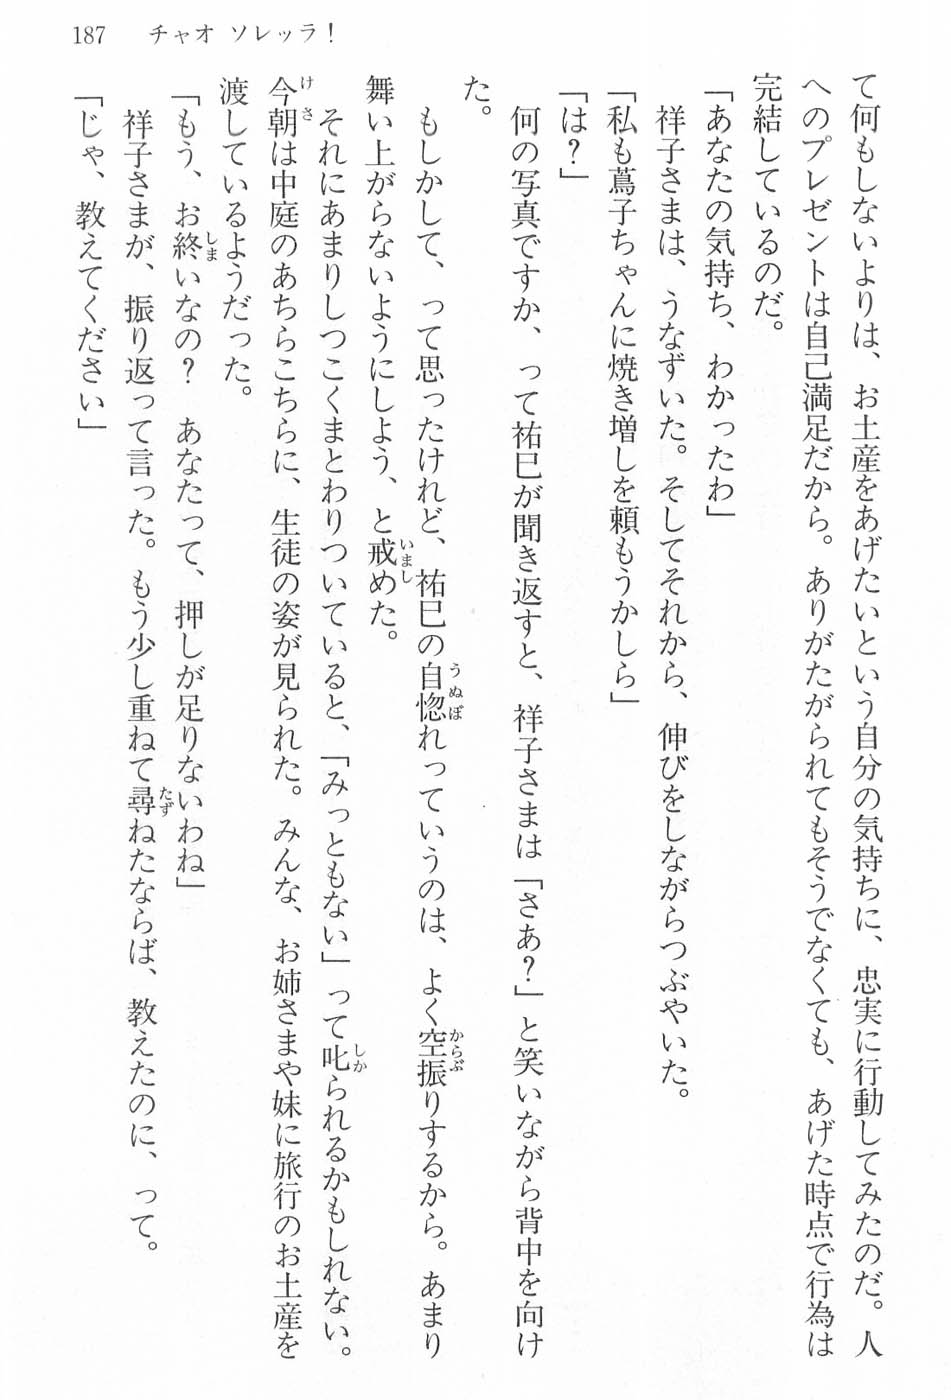 187　チャオ ソレッラ！
て何もしないよりは、お土産をあげたいという自分の気持ちに、忠実に行動してみたのだ。人
へのプレゼントは自己満足だから。ありがたがられてもそうでなくても、あげた時点で行為は
完結しているのだ。
「あなたの気持ち、わかったわ」
　祥子さまは、うなずいた。そしてそれから、伸びをしながらつぶやいた。
「私も蔦子ちゃんに焼き増しを頼もうかしら」
「は？」
　何の写真ですか、って祐巳が聞き返すと、祥子さまは「さあ？」と笑いながら背中を向け
た。
　もしかして、って思ったけれど、祐巳の自惚れっていうのは、よく空振りするから。あまり
舞い上がらないようにしよう、と戒めた。
　それにあまりしつこくまとわりついていると、「みっともない」って叱られるかもしれない。
今朝は中庭のあちらこちらに、生徒の姿が見られた。みんな、お姉さまや妹に旅行のお土産を
渡しているようだった。
「もう、お終いなの？　あなたって、押しが足りないわね」
　祥子さまが、振り返って言った。もう少し重ねて尋ねたならば、教えたのに、って。
「じゃ、教えてください」